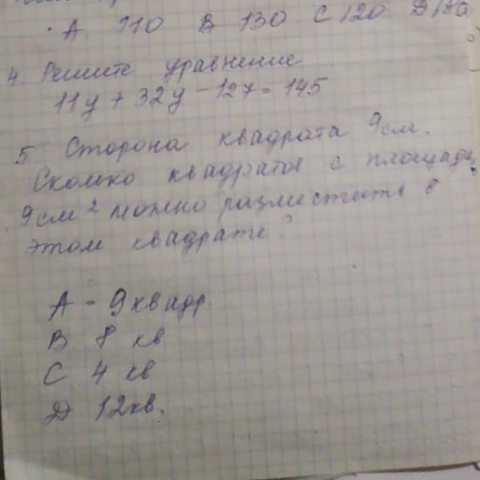 А. 110 В 130 С 120 Д
4 Решите уравнение
11у + 32у - 127 = 145
5. Сторона квадрата 9см.
Сколько квадратов с площадь
9см² можно разместить в
этом квадрате?
А - 9 квадр.
В 8 кв
С 4 кв
Д 12кв.